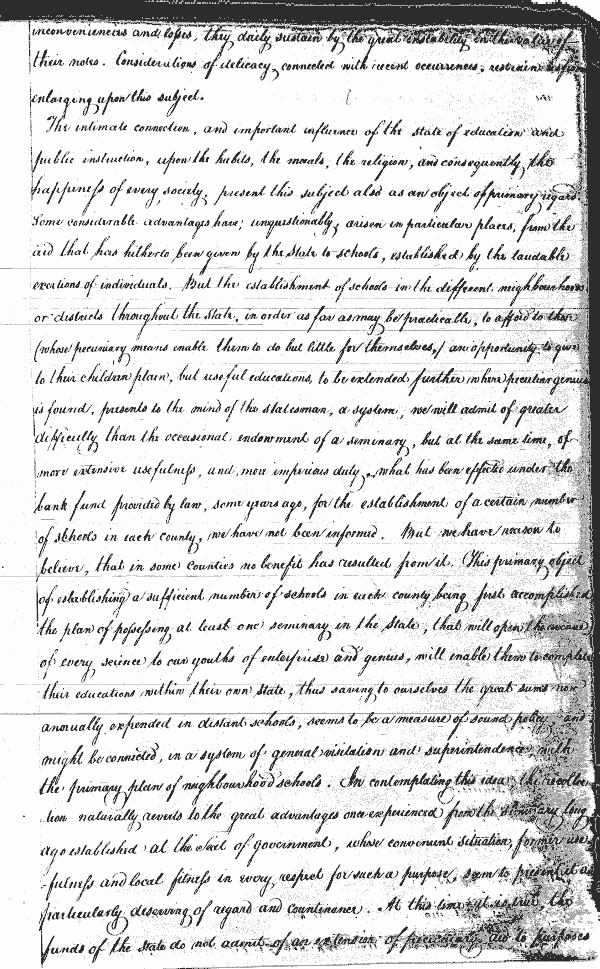 inconveniences and losses, they daily sustain by the great instability in the value of
their notes. Considerations of delicacy, connected with recent occurrences, restrain us from
enlarging upon this subject.
The intimate connection, and important influence of the state of education and
public instruction, upon the habits, the morals, the religion, and consequently, the
happiness of every society, present this subject also as an object of primary regard.
Some considerable advantages have, unquestionably, arisen in particular places, from the
aid that has hitherto been given by the State to schools, established by the laudable
exertions of individuals. But the establishment of schools in the different neighbourhoods
or districts throughout the State, in order as far as may be practicable, to afford to those
(whose pecuniary means enable them to do but little for themselves,) an opportunity to give
to their children plain, but useful educations, to be extended further where peculiar genius
is found, presents to the mind of the statesman, a system, we will admit of greater
difficulty than the occasional endowment of a seminary, but at the same time, of
more extensive usefulness, and more imperious duty. what has been effected under the
bank fund provided by law, some years ago, for the establishment of a certain number
of schools in each county, we have not been informed. But we have reason to
believe, that in some counties no benefit has resulted from it. This primary object
of establishing a sufficient number of schools in each county being first accomplished
the plan of possessing at least one seminary in the State, that will open the avenues
of every science to our youths of enterprise and genius, will enable them to complete
their educations within their own State, thus saving to ourselves the great sums now
annually expended in distant schools, seems to be a measure of sound policy and
might be connected, in a system of general visitation and superintendence with
the primary plan of neighbourhood schools. In contemplating this idea, the recollec-
tion naturally reverts to the great advantages once experienced from the seminary long
ago established at the Seat of government, whose convenient situation, former use
-fulness and local fitness in every respect for such a purpose, seem to present it as
particularly deserving of regard and countenance. At this time it is true, the
funds of the State do not admit of an extension of pecuniary aid to purposes